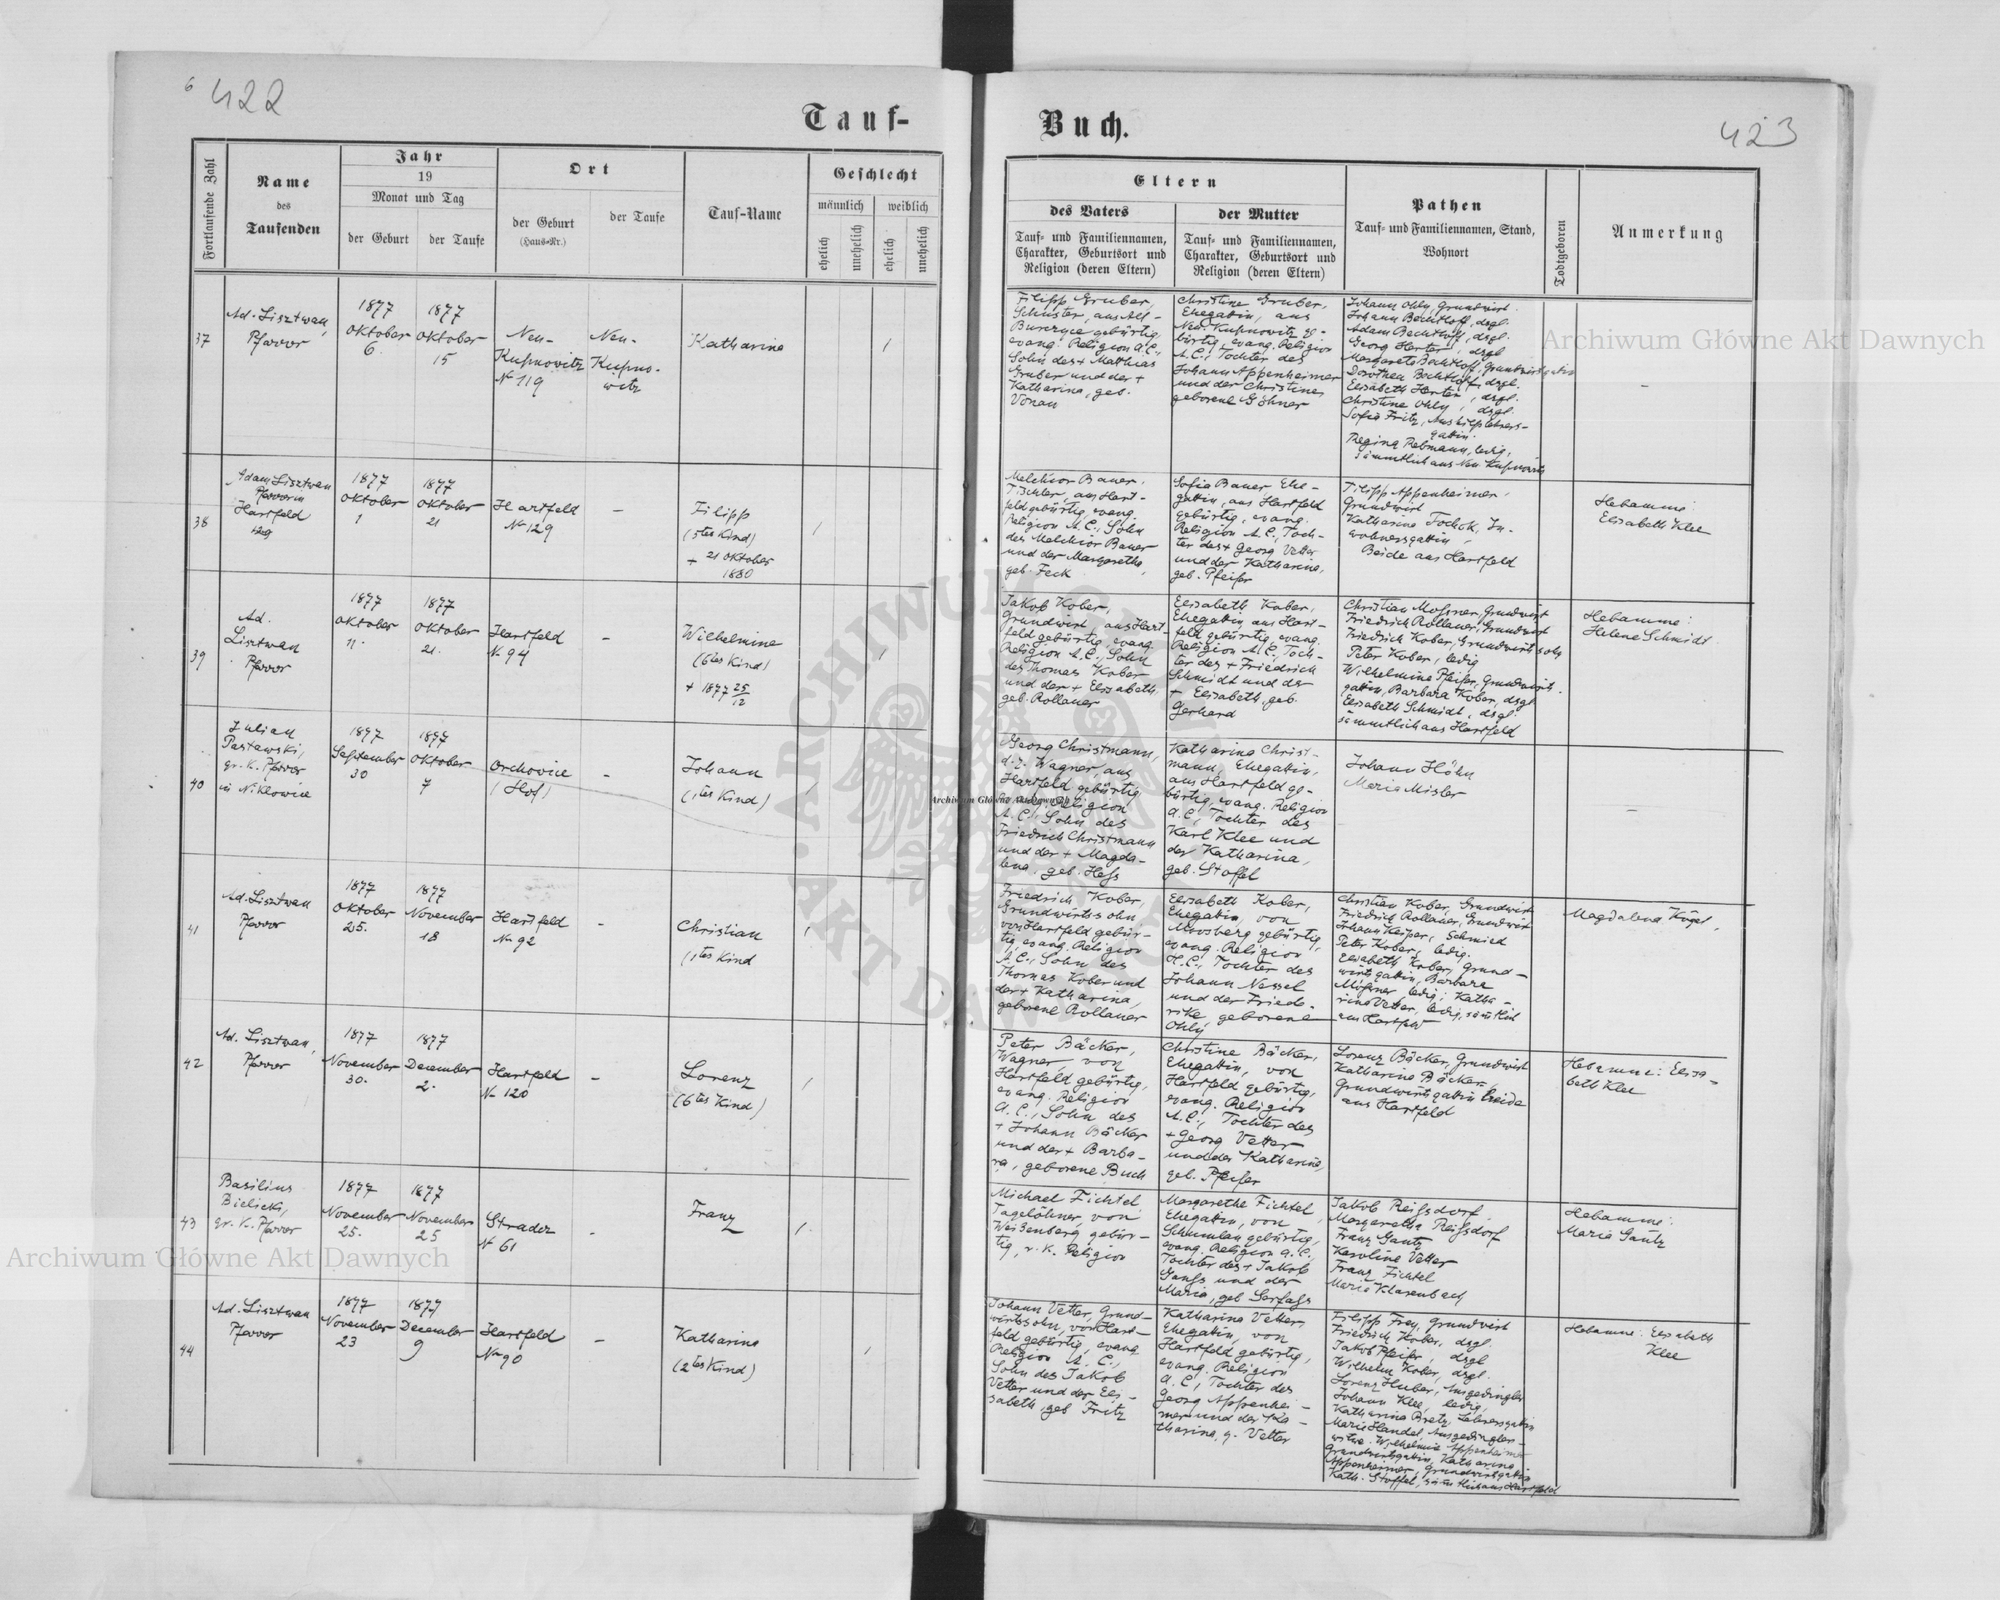 6 422
Tauf-
Fortlaufende Zahl
Name
des
Taufenden
Jahr
19
Monat und Tag
der Geburt
der Taufe
Ort
der Geburt
(Haus-Nr.)
der Taufe
Tauf-Name
Geschlecht
männlich
weiblich
ehelich
unehelich
ehelich
unehelich
37
Ad. Lisztwan,
Pfarrer
1877
Oktober
6.
1877
Oktober
15
Neu-
Kupnovitz
N 119
Neu-
Kupno-
witz
Katharina
38
Adam Lisztwan
Pfarrer in
Hartfeld
1877
Oktober
1
1877
Oktober
21
Hartfeld
N 129
-
Filipp
(5tes Kind)
+ 21 Oktober
1880
39
Ad.
Lisztwan
Pfarrer
1877
Oktober
11.
1877
Oktober
21.
Hartfeld
N 94
-
Wilhelmine
(6tes Kind)
+ 1877 25/12
40
Julian
Pastawski,
gr. K. Pfarrer
in Niklowice
1877
September
30
1877
Oktober
7
Orchovice
(Hof)
-
Johann
(1tes Kind)
41
Ad. Lisztwan
Pfarrer
1877
Oktober
25.
1877
November
18
Hartfeld
N 92
-
Christian
(1tes Kind
42
Ad. Lisztwan,
Pfarrer
1877
November
30.
1877
December
2.
Hartfeld
N 120
-
Lorenz
(6tes Kind)
43
Basilius
Bielicki,
gr. K. Pfarrer
1877
November
25.
1877
November
25
Stradcz
N 61
-
Franz
44
Ad. Lisztwan
Pfarrer
1877
November
23
1877
December
9
Hartfeld
N 90
-
Katharina
(2tes Kind)
Buch.
423
Eltern
des Vaters
Tauf- und Familiennamen,
Charakter, Geburtsort und
Religion (deren Eltern)
der Mutter
Tauf- und Familiennamen,
Charakter, Geburtsort und
Religion (deren Eltern)
Pathen
Tauf- und Familiennamen, Stand,
Wohnort
Todtgeboren
Anmerkung
Filipp Gruber,
Schuster, aus Alt-
Burczyce gebürtig,
evang. Religion A.C.,
Sohn des + Matthias
Gruber und der +
Katharina, geb.
Vonau
Christine Gruber,
Ehegattin, aus
Neu-Kupnovitz ge-
bürtig, evang. Religion
A.C., Tochter des
Johann Appenheimer
und der Christine,
geborene Göhner
Johann Ohly, Grundwirt
Johann Bechtloff, dsgl.
Adam Bechtloff, dsgl.
Georg Herter, dsgl
Margareta Bechtloff, Grundwirtsgattin
Dorothea Bechtloff, dsgl.
Elisabeth Herter, dsgl.
Christine Ohly, dsgl.
Sofia Fritz, Aushilfslehrers-
gattin.
Regina Rebmann, ledig,
sämmtlich aus Neu Kupnovitz
-
Melchior Bauer,
Tischler, aus Hart-
feld gebürtig, evang.
Religion A.C., Sohn
des Melchior Bauer
und der Margaretha,
geb. Feck
Sofia Bauer Ehe-
gattin, aus Hartfeld
gebürtig, evang.
Religion A.C., Toch-
ter des + Georg Vetter
und der Katharina,
geb. Pfeifer
Filipp Appenheimer,
Grundwirt
Katharina Tochok, In-
wohnersgattin,
Beide aus Hartfeld
Hebamme:
Elisabeth Klee
Jakob Kober,
Grundwirt aus Hart-
feld gebürtig, evang.
Religion A.C., Sohn
des Thomas Kober
und der + Elisabeth,
geb. Rollauer
Elisabeth Kober,
Ehegattin aus Hart-
feld gebürtig, evang.
Religion A.C., Toch-
ter des + Friedrich
Schmidt und der
+ Elisabeth, geb.
Gerhard
Christian Mossner, Grundwirt
Friedrich Rollauer, Grundwirt
Friedrich Kober, Grundwirtssohn
Peter Kober, ledig
Wilhelmine Pfeifer, Grundwirts-
gattin, Barbara Kober, dsgl
Elisabeth Schmidt, dsgl.
sämmtlich aus Hartfeld
Hebamme:
Helene Schmidt
Georg Christmann,
d. z. Wagner, aus
Hartfeld gebürtig,
evang. Religion
A.C., Sohn des
Friedrich Christmann
und der + Magda-
lena, geb. Hess
Katharina Christ-
mann, Ehegattin,
aus Hartfeld ge-
bürtig, evang. Religion
A.C., Tochter des
Karl Klee und
der Katharina,
geb. Stoffel
Johann Höhn
Maria Misler
-
Friedrich Kober,
Grundwirtssohn
von Hartfeld gebür-
tig, evang. Religion
A.C., Sohn des
Thomas Kober und
der + Katharina,
geborene Rollauer
Elisabeth Kober,
Ehegattin, von
Moosberg gebürtig,
evang. Religion
H.C., Tochter des
Johann Nessel
und der Friede-
rike, geborene
Ohly
Christian Kober, Grundwirt
Friedrich Rollauer, Grundwirt
Johann Keiper, Schmied
Peter Kober, ledig.
Elisabeth Kober, Grund-
wirtsgattin, Barbara
Mössner, ledig; Katha-
rina Vetter, ledig, sämtlich
aus Hartfeld
Magdalena Kügel,
Peter Bäcker,
Wagner, von
Hartfeld gebürtig,
evang. Religion
A.C., Sohn des
+ Johann Bäcker
und der + Barba-
ra, geborene Buch
Christine Bäcker,
Ehegattin, von
Hartfeld gebürtig,
evang. Religion
A.C., Tochter des
+ Georg Vetter
und der Katharina,
geb. Pfeifer
Lorenz Bäcker, Grundwirt
Katharina Bäcker,
Grundwirtsgattin beide
aus Hartfeld
Hebamme: Elisa-
beth Klee
Michael Fichtel
Tagelöhner, von
Weißenberg gebür-
tig, r. K. Religion
Margarethe Fichtel,
Ehegattin, von
Schumlau gebürtig,
evang. Religion A.C.
Tochter des + Jakob
Ganss und der
Maria, geb Serfass
Jakob Reissdorf
Margaretha Reissdorf
Franz Gantz
Karoline Vetter
Franz Fichtel
Maria Klarenbach
Hebamme:
Maria Gantz
Johann Vetter, Grund-
wirtssohn, von Hart-
feld gebürtig, evang.
Religion A.C.,
Sohn des Jakob
Vetter und der Eli-
sabeth, geb Fritz
Katharina Vetter,
Ehegattin, von
Hartfeld gebürtig,
evang. Religion
A.C., Tochter des
Georg Appenhei-
mer und der Ka-
tharina, g. Vetter
Filipp Frey, Grundwirt
Friedrich Kober, dsgl.
Jakob Pfeifer, dsgl
Wilhelm Kober, dsgl.
Lorenz Huber, Ausgedingler
Johann Klee, ledig,
Katharina Bretz, Lehrersgattin
Maria Handel, Ausgedinglers-
witwe. Wilhelmine Appenheimer
Grundwirtsgattin, Katharina
Appenheimer, Grundwirtsgattin
Kath. Stoffel, sämtlich aus Hartfeld
Hebamme: Elisabeth
Klee
Archiwum Główne Akt Dawnych
Archiwum Główne Akt Dawnych
Archiwum Główne Akt Dawnych
ARCHIWUM GŁÓWNE
AKT DAWNYCH